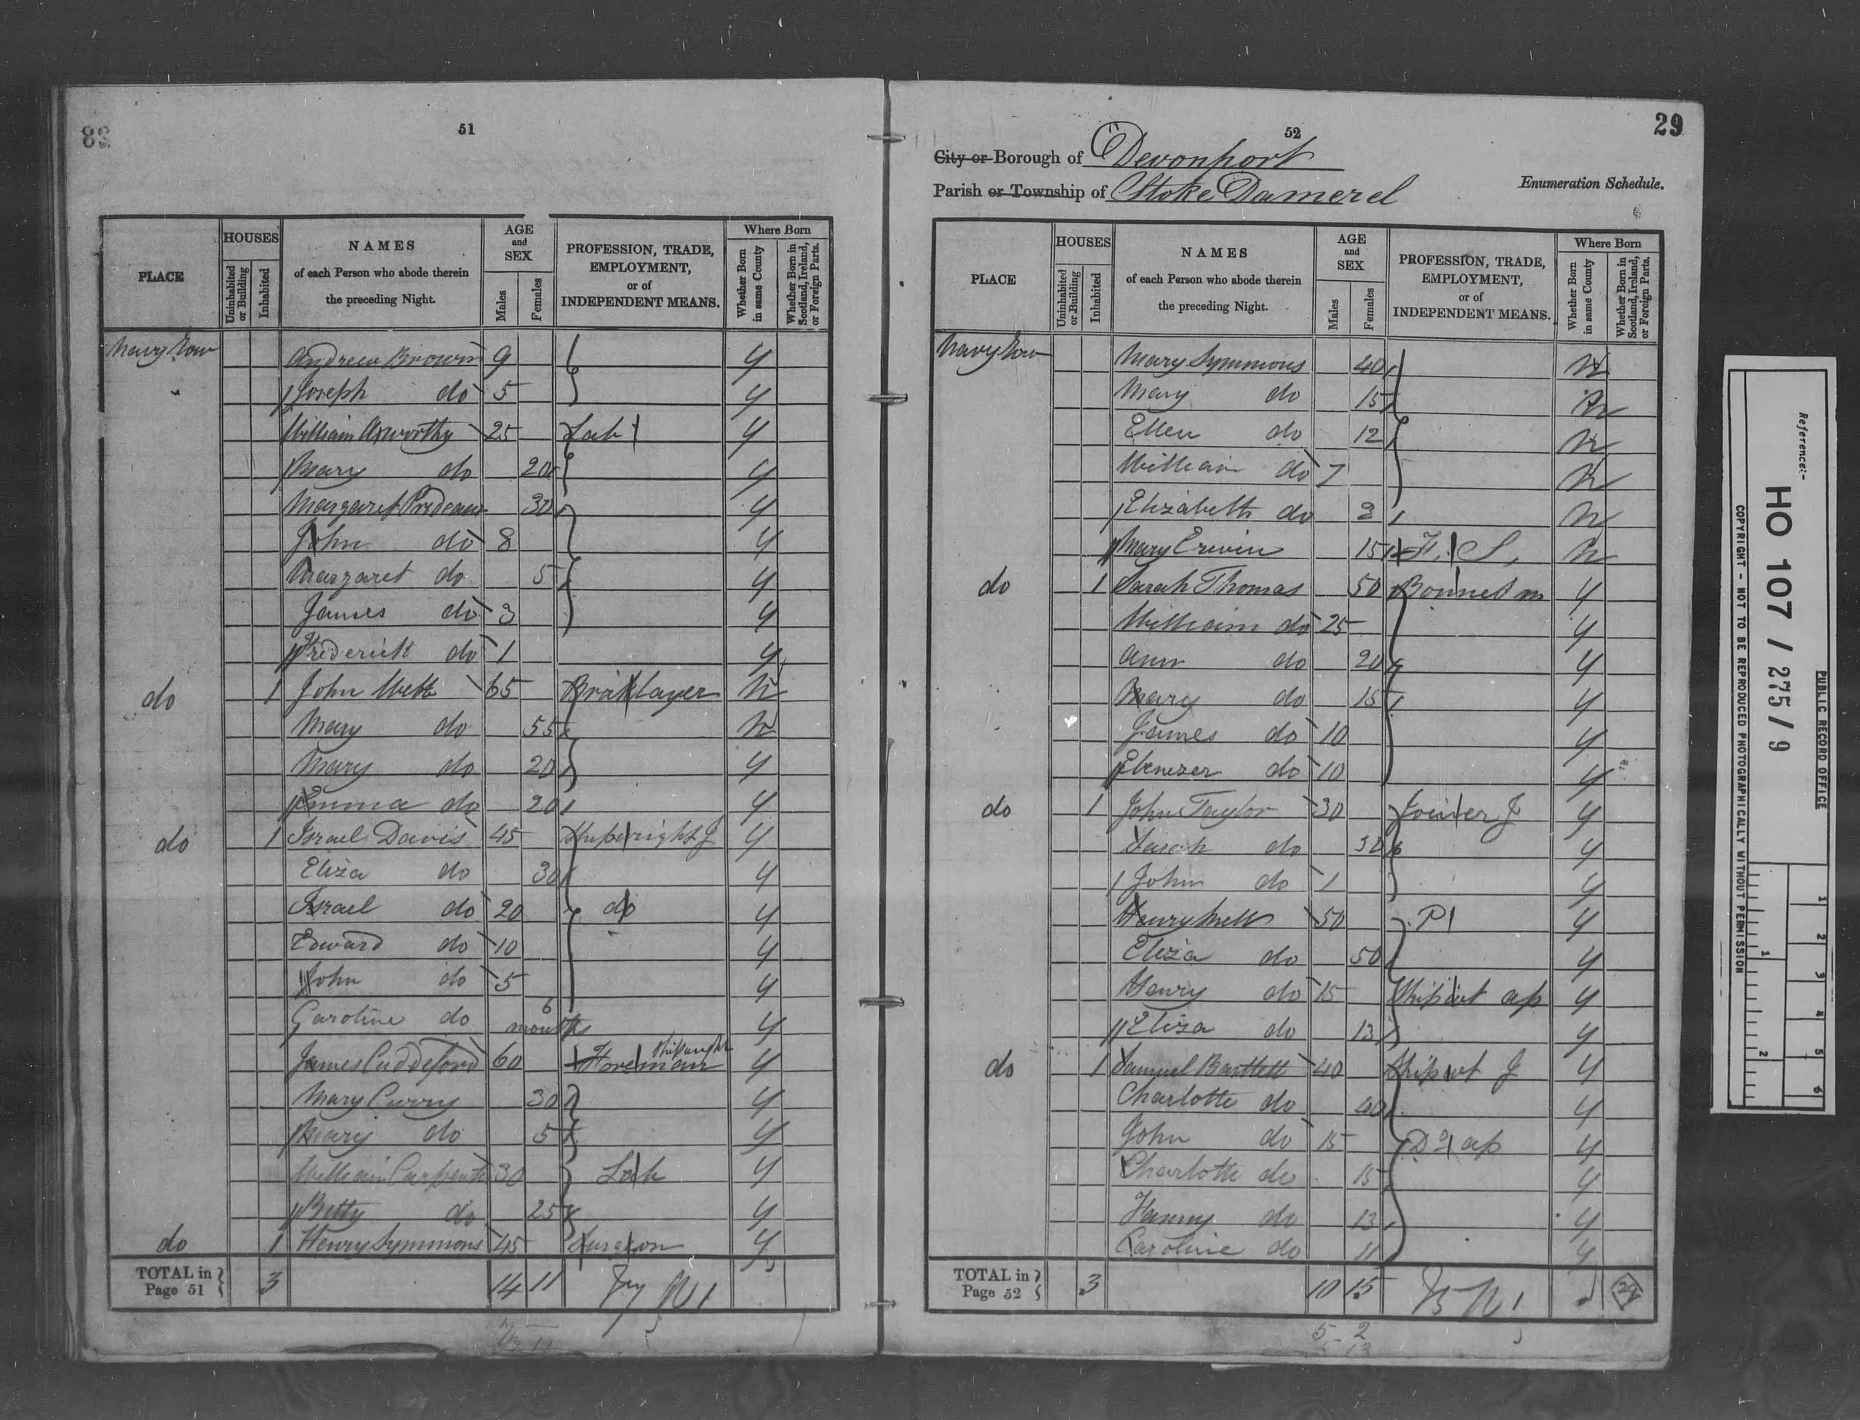 83
51
PLACE
HOUSES
Uninhabited or Building
Inhabited
NAMES
of each Person who abode therein
the preceding Night.
AGE
and
SEX
Males
Females
PROFESSION, TRADE,
EMPLOYMENT,
or of
INDEPENDENT MEANS.
Where Born
Whether Born in same County
Whether Born in Scotland, Ireland, or Foreign Parts.
Navy Row Andrew Brown 9 y
Joseph do 5 y
William Axworthy 25 Lab y
Mary do 20 y
Margaret Prideaux 30 y
John do 8 y
Margaret do 5 y
James do 3 y
Frederick do 1 y
do 1 John Webb 65 Bricklayer N
Mary do 55 N
Mary do 20 y
Emma do 20 y
do 1 Israel Davis 45 Shipwright J y
Eliza do 30 y
Israel do 20 do y
Edward do 10 y
John do 5 y
Caroline do 6 month y
James Cuddeford 60 Foreman Shipwright y
Mary Curry 30 y
Mary do 5 y
William Carpenter 30 Lab y
Betty do 25 y
do 1 Henry Symmons 45 Surgeon y
TOTAL in Page 51 3 14 11
52
29
City or Borough of Devonport
Parish or Township of Stoke Damerel
Enumeration Schedule.
PLACE
HOUSES
Uninhabited or Building
Inhabited
NAMES
of each Person who abode therein
the preceding Night.
AGE
and
SEX
Males
Females
PROFESSION, TRADE,
EMPLOYMENT,
or of
INDEPENDENT MEANS.
Where Born
Whether Born in same County
Whether Born in Scotland, Ireland, or Foreign Parts.
Navy Row Mary Symmons 40 N
Mary do 15 N
Ellen do 12 N
William do 7 N
Elizabeth do 2 N
Mary Erwin 15 F. S. N
do 1 Sarah Thomas 50 Bonnet m y
William do 25 y
Ann do 20 y
Mary do 15 y
James do 10 y
Ebenezer do 10 y
do 1 John Taylor 30 Joiner J y
Sarah do 30 y
John do 1 y
Henry 50 P y
Eliza do 50 y
Henry do 15 Shipwt ap y
Eliza do 13 y
do 1 Samuel Bartlett 40 Shipwt J y
Charlotte do 40 y
John do 15 Do ap y
Charlotte do 15 y
Fanny do 13 y
Caroline do 11 y
TOTAL in Page 52 3 10 15
5 2
13
Reference:-
HO 107 / 275/9
PUBLIC RECORD OFFICE
COPYRIGHT - NOT TO BE REPRODUCED PHOTOGRAPHICALLY WITHOUT PERMISSION
1 2 3 4 5 6
1 2